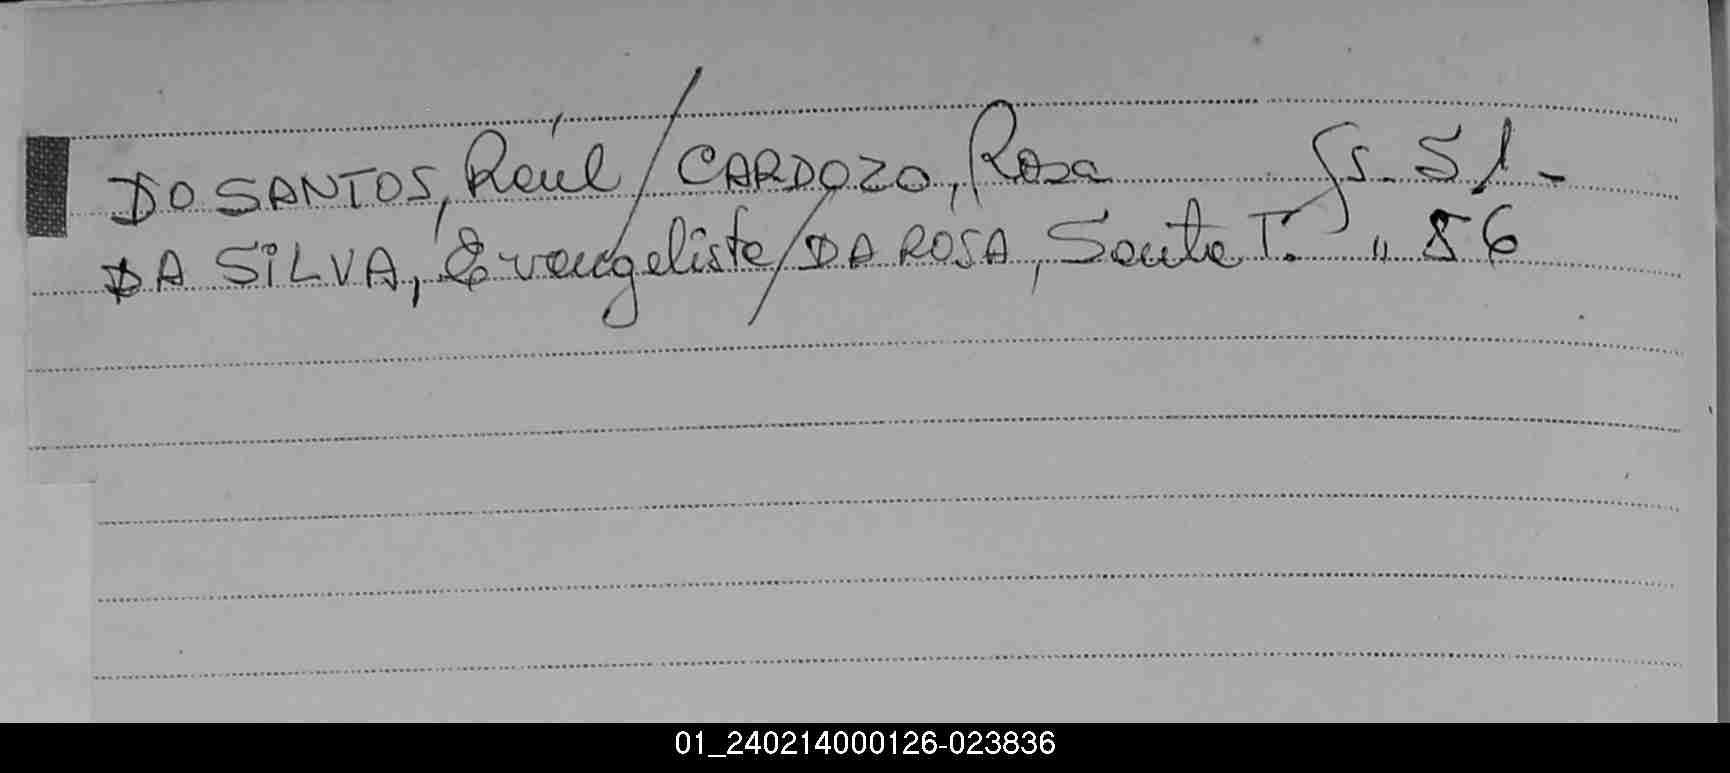 DO SANTOS, Raúl / CARDOZO, Rosa Fs. 51-
DA SILVA, Evangelista / DA ROSA, Santa T. " 56
01_240214000126-023836